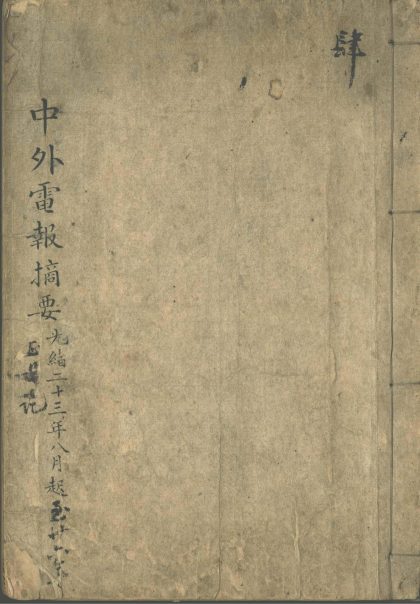 肆
中外電報摘要
光緒二十三年八月起至廿六年